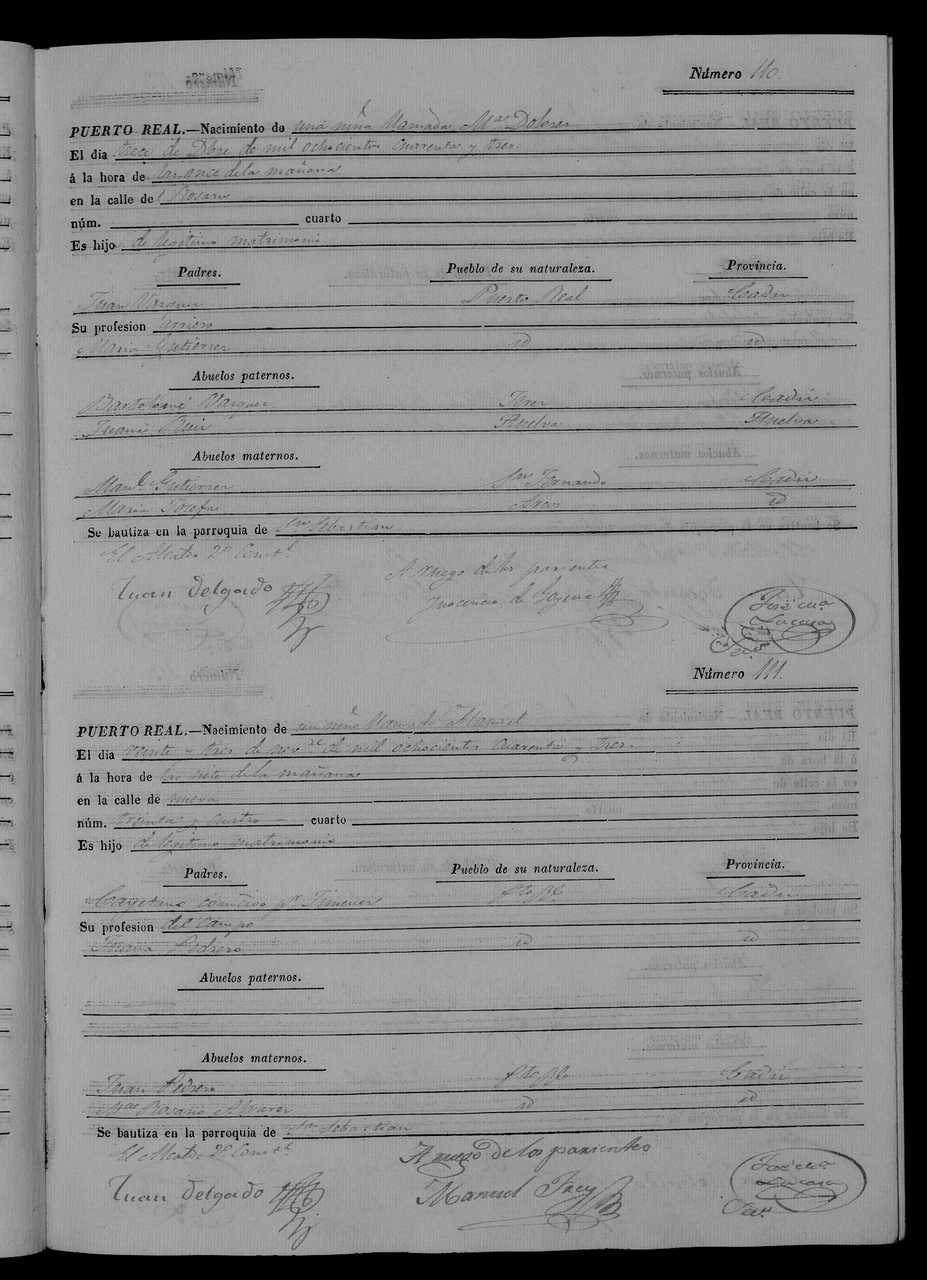 Número 110.
PUERTO REAL.—Nacimiento de una niña llamada Mª Dolores
El dia trece de Dbre de mil ochocientos cuarenta y tres.
á la hora de las once de la mañana
en la calle del Rosario
núm. cuarto
Es hijo de legitimo matrimonio
Padres. Pueblo de su naturaleza. Provincia.
Juan Vazquez Puerto Real Cadiz
Su profesion arriero
Maria Gutierrez id id
Abuelos paternos.
Bartolomé Vazquez Jerez Cadiz
Juana Ruiz Huelva Huelva
Abuelos maternos.
Manl. Gutierrez Sn Fernando Cadiz
Maria Josefa Arcos id
Se bautiza en la parroquia de Sn Sebastian
El Alcalde 2º Constl.
A ruego de los parientes
Juan Delgado
Inocencio de
José Mª
Lacasa
Srio
Número 111.
PUERTO REAL.—Nacimiento de un niño llamado Manuel
El dia veinte y tres de novre de mil ochocientos cuarenta y tres.
á la hora de las siete de la mañana
en la calle de nueva
núm. treinta y cuatro cuarto
Es hijo de legitimo matrimonio
Padres. Pueblo de su naturaleza. Provincia.
Cayetano conocido pr Jimenez Pto Rl Cadiz
Su profesion del campo
Juana Pedrero id id
Abuelos paternos.
Abuelos maternos.
Juan Pedrero Pto Rl Cadiz
Mª Rosario Alvarez id id
Se bautiza en la parroquia de Sn Sebastian
El Alcalde 2º Constl.
A ruego de los parientes
Juan Delgado
Manuel
José Mª
Lacasa
Srio.